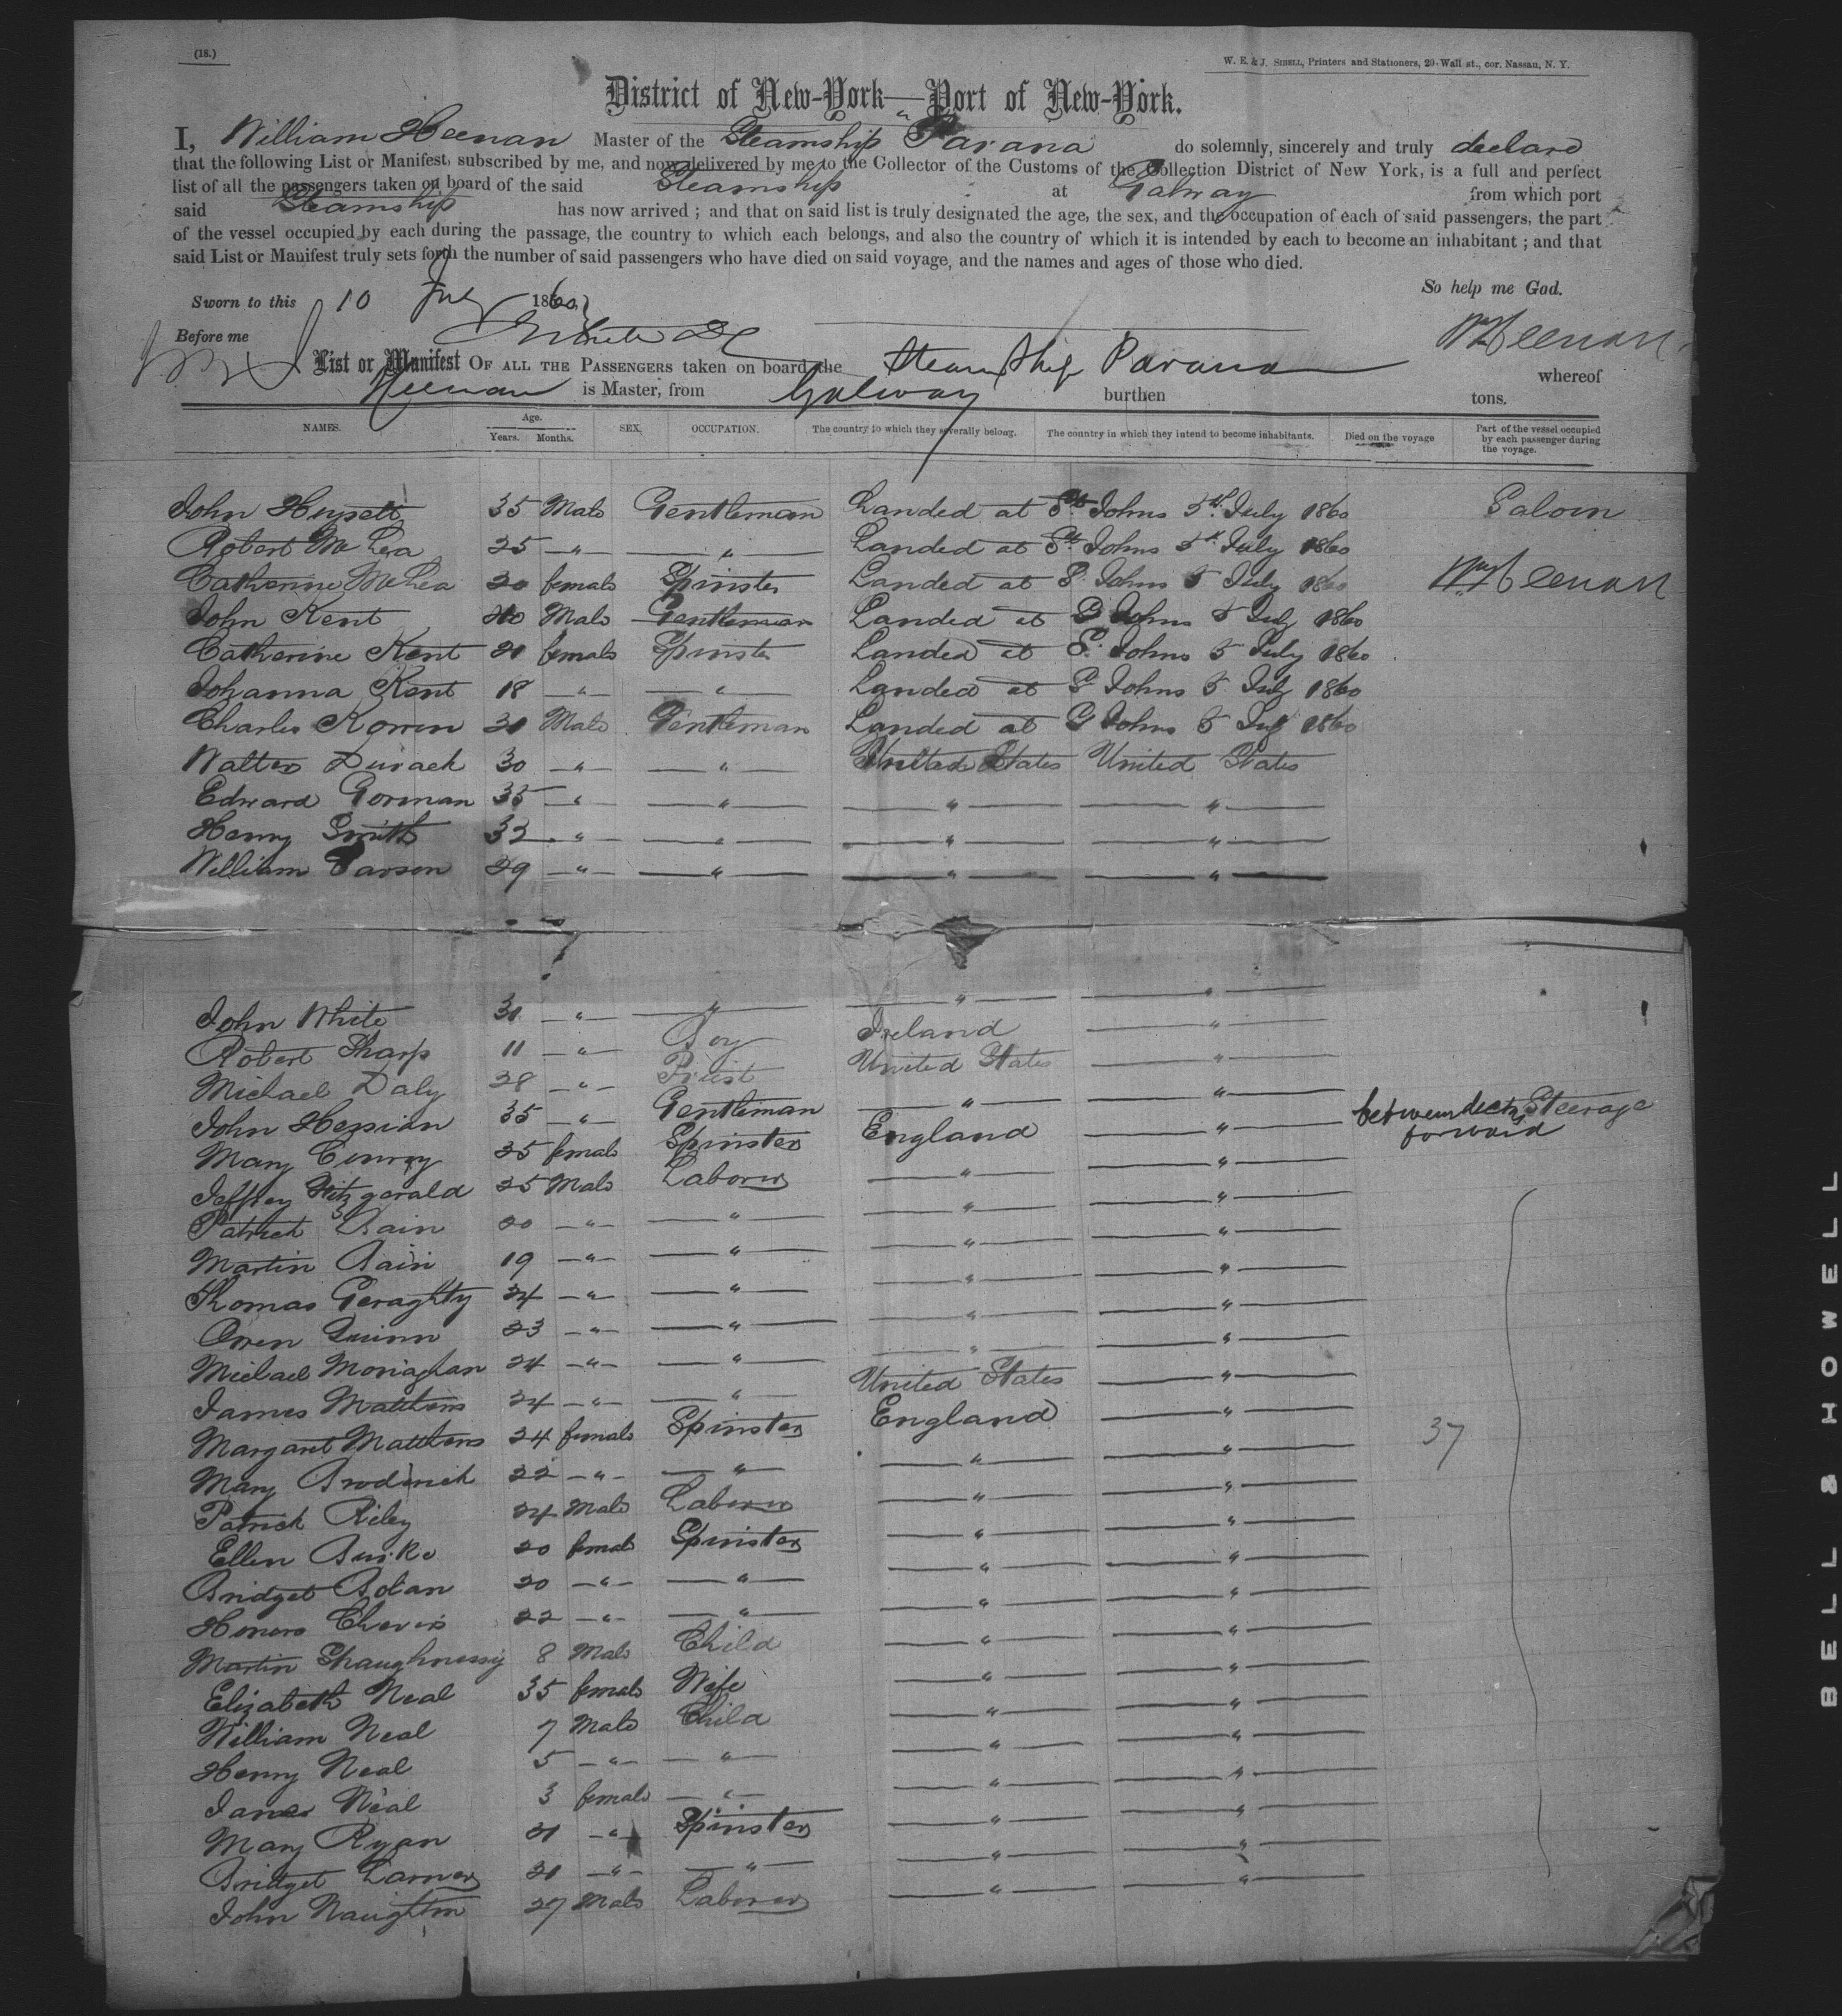 (18.)
W. E. & J. SIBELL, Printers and Stationers, 20 Wall st., cor. Nassau, N. Y.
District of New-York—Port of New-York.
I, William Heenan Master of the Steamship "Parana do solemnly, sincerely and truly declare
that the following List or Manifest, subscribed by me, and now delivered by me to the Collector of the Customs of the Collection District of New York, is a full and perfect
list of all the passengers taken on board of the said Steamship at Galway from which port
said Steamship has now arrived ; and that on said list is truly designated the age, the sex, and the occupation of each of said passengers, the part
of the vessel occupied by each during the passage, the country to which each belongs, and also the country of which it is intended by each to become an inhabitant ; and that
said List or Manifest truly sets forth the number of said passengers who have died on said voyage, and the names and ages of those who died.
So help me God.
Sworn to this 10 July 1860
Before me
Wm Heenan
List or Manifest OF ALL THE PASSENGERS taken on board the Steam Ship Parana whereof
Heenan is Master, from Galway burthen tons.
NAMES. Age. Years. Months. SEX. OCCUPATION. The country to which they severally belong. The country in which they intend to become inhabitants. Died on the voyage Part of the vessel occupied by each passenger during the voyage.
John 35 Male Gentleman Landed at St. Johns 5th July 1860 Saloon
Robert McLea 25 —"— —"— Landed at St. Johns 5th July 1860
Catherine McLea 20 female Spinster Landed at St Johns 5 July 1860 Wm Heenan
John Kent Male Gentleman Landed at St Johns 5 July 1860
Catherine Kent 21 female Spinster Landed at St Johns 5 July 1860
Johanna Kent 18 —"— —"— Landed at St Johns 5 July 1860
Charles 31 Male Gentleman Landed at St Johns 5 July 1860
Walter Durack 30 —"— —"— United States United States
Edward Gorman 35 —"— —"— —"— —"—
Henry Smith 32 —"— —"— —"— —"—
William Carson 29 —"— —"— —"— —"—
John White 31 —"— —"— —"— —"—
Robert Sharp 11 —"— Boy Ireland —"—
Michael Daly 28 —"— Priest United States —"—
John Hessian 35 —"— Gentleman —"— —"—
Mary Conroy 25 female Spinster England —"— between decks Steerage forward
Jeffrey Fitzgerald 25 Male Laborer —"— —"—
Patrick Bain 20 —"— —"— —"— —"—
Martin Bain 19 —"— —"— —"— —"—
Thomas Geraghty 24 —"— —"— —"— —"—
Owen Quinn 23 —"— —"— —"— —"—
Michael Monaghan 24 —"— —"— —"— —"—
James Matthews 24 —"— —"— United States —"—
Margaret Matthews 24 female Spinster England —"— 37
Mary Broderick 22 —"— —"— —"— —"—
Patrick Riley 24 Male Laborer —"— —"—
Ellen Burke 20 female Spinster —"— —"—
Bridget 20 —"— —"— —"— —"—
Honora 22 —"— —"— —"— —"—
Martin Shaughnessy 8 Male Child —"— —"—
Elizabeth Neal 35 female Wife —"— —"—
William Neal 7 Male Child —"— —"—
Henry Neal 5 —"— —"— —"— —"—
Neal 3 female —"— —"— —"—
Mary Ryan 21 —"— Spinster —"— —"—
Bridget Larner 21 —"— —"— —"— —"—
John Naughton 27 Male Laborer —"— —"—
BELL & HOWELL